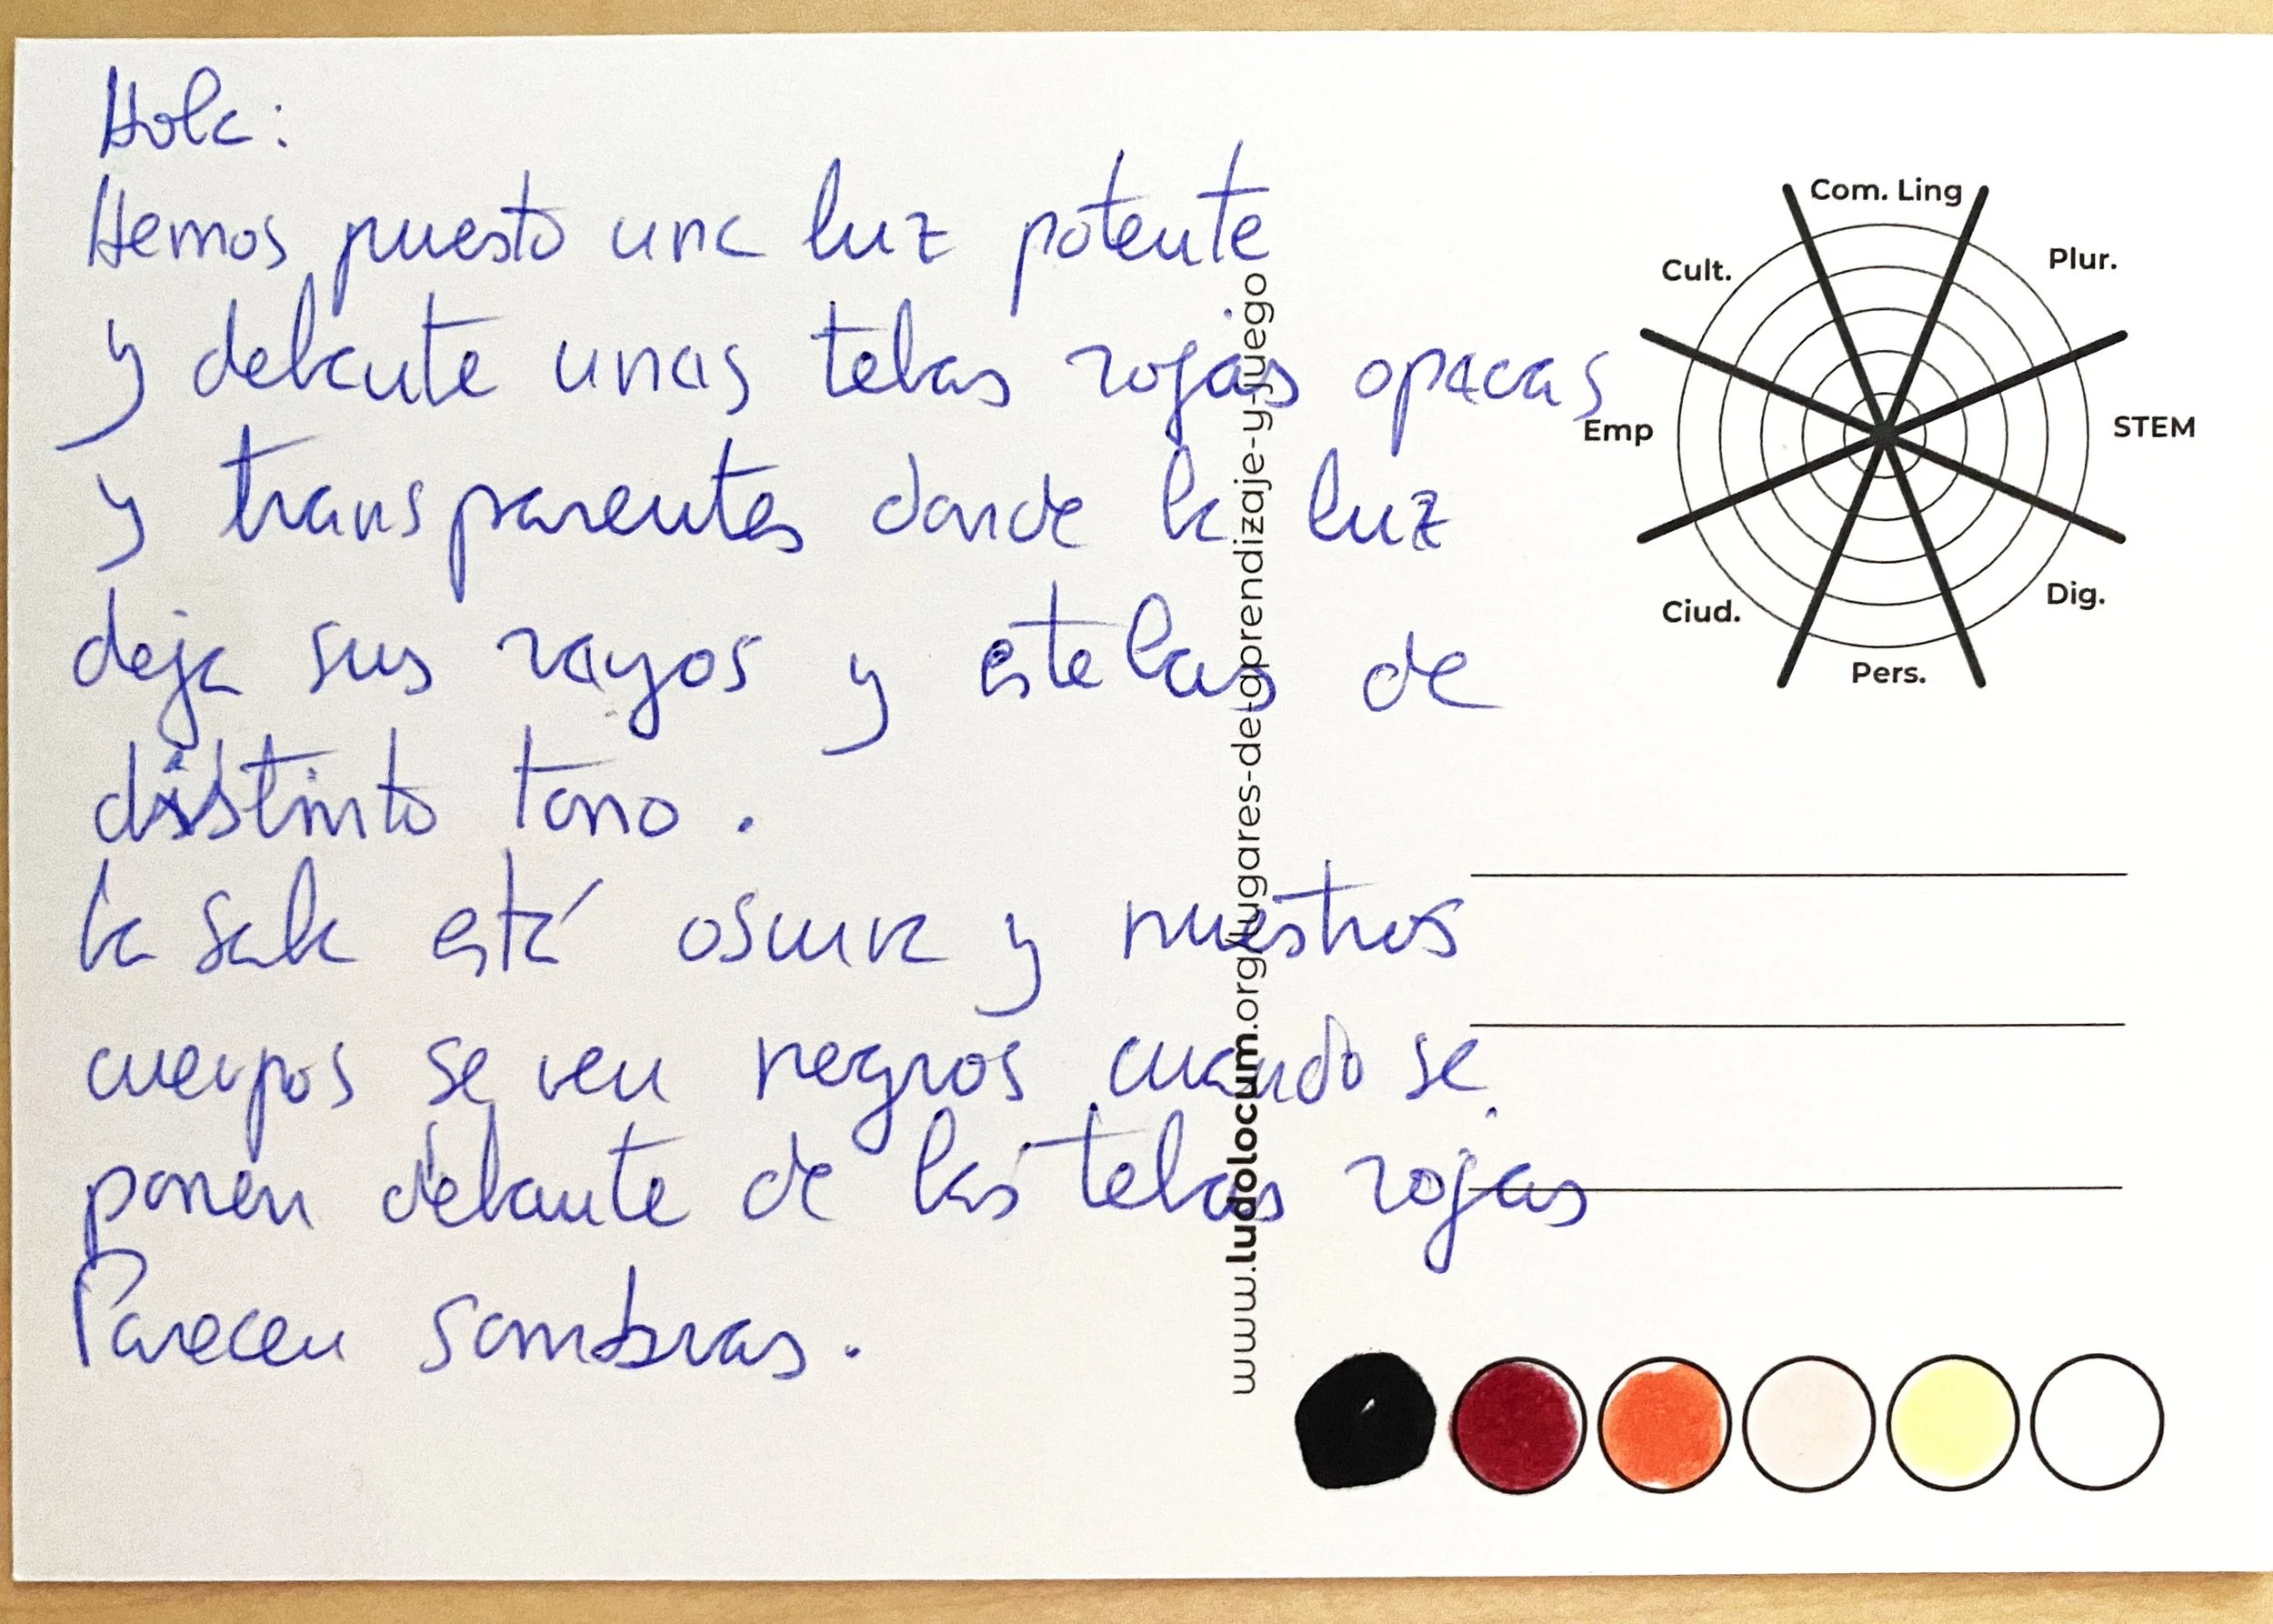 Hola:
Hemos puesto una luz potente
y delante unas telas rojas opacas
y transparentes donde la luz
deja sus rayos y estelas de
distinto tono.
la sala está oscura y nuestros
cuerpos se ven negros cuando se
ponen delante de las telas rojas
Parecen sombras.
www.ludolocum.org/lugares-de-aprendizaje-y-juego
Com. Ling
Plur.
STEM
Dig.
Pers.
Ciud.
Emp
Cult.